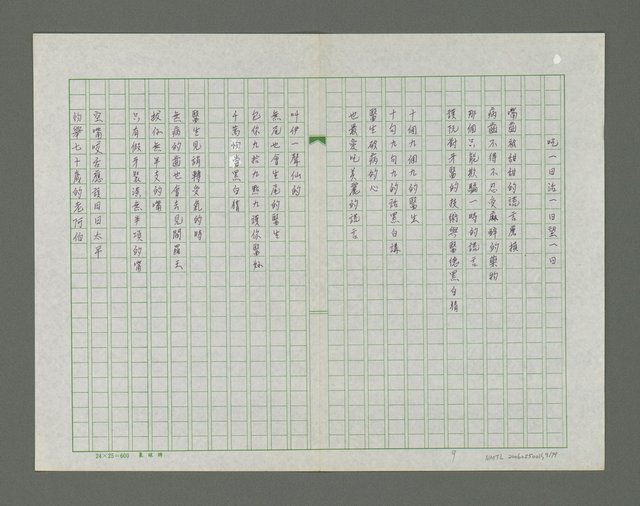 吃一日治一日望一日
嘴齒被甜甜的謊言磨損
病齒不得不忍受麻醉的藥物
那個只能欺騙一時的謊言
讓阮對牙醫的技術與醫德黑白猜
十個九個九的醫生
十句九句九的話黑白講
醫生破病的心
也最愛吃美麗的謊言
叫伊一聲仙的
無尾也會生尾的醫生
包你九拾九點九讓你醫好
千萬怀當黑白猜
醫生見講轉受氣的時
無病的齒也會去見閻羅王
拔你無半支的嘴
只有假牙裝滿無半項的嘴
空嘴咬舌應該日日太平
怀舉七十歲的老阿伯
24×25=600
9
NMTL 20060250019,9/14